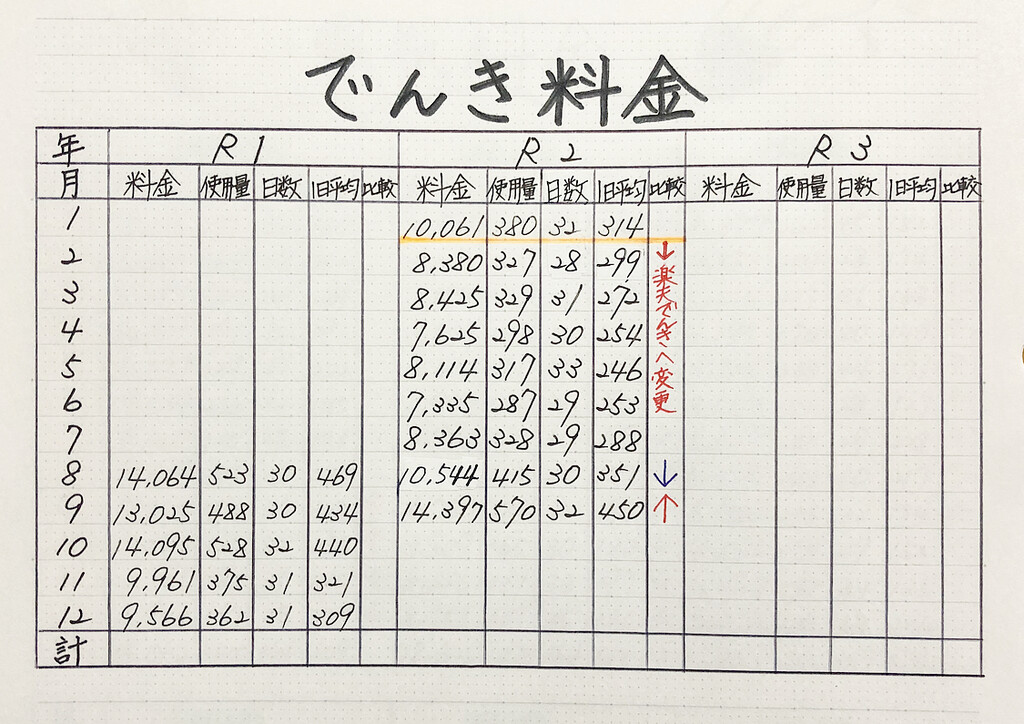 でんき料金
年 R1 R2 R3
月 料金 使用量 日数 1日平均 比較 料金 使用量 日数 1日平均 比較 料金 使用量 日数 1日平均 比較
1 10,061 380 32 314
2 8,380 327 28 299 ↓楽天でんきへ変更
3 8,425 329 31 272
4 7,625 298 30 254
5 8,114 317 33 246
6 7,335 287 29 253
7 8,363 328 29 288
8 14,064 523 30 469 10,544 415 30 351 ↓
9 13,025 488 30 434 14,397 570 32 450 ↑
10 14,095 528 32 440
11 9,961 375 31 321
12 9,566 362 31 309
計